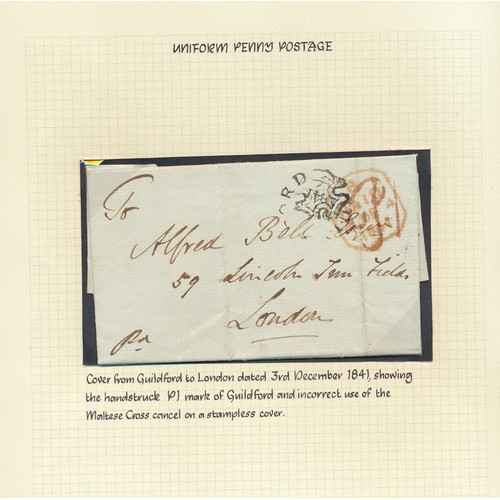 UNIFORM PENNY POSTAGE
To
Alfred Bell
59 Lincoln Inn Fields
London
Pd
Cover from Guildford to London dated 3rd December 1841, showing
the handstruck P1 mark of Guildford and incorrect use of the
Maltese Cross cancel on a stampless cover.